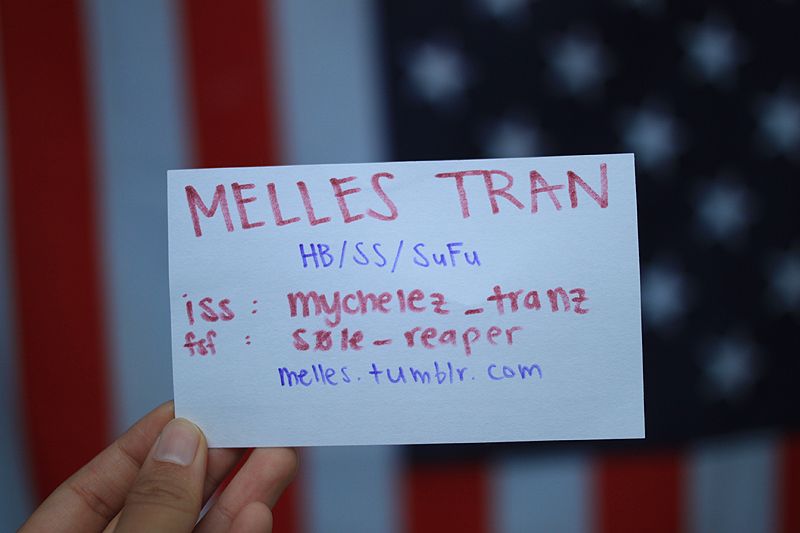 MELLES TRAN
HB/SS/SuFu
iss : mychelez_tranz
fsf : søle_reaper
melles.tumblr.com